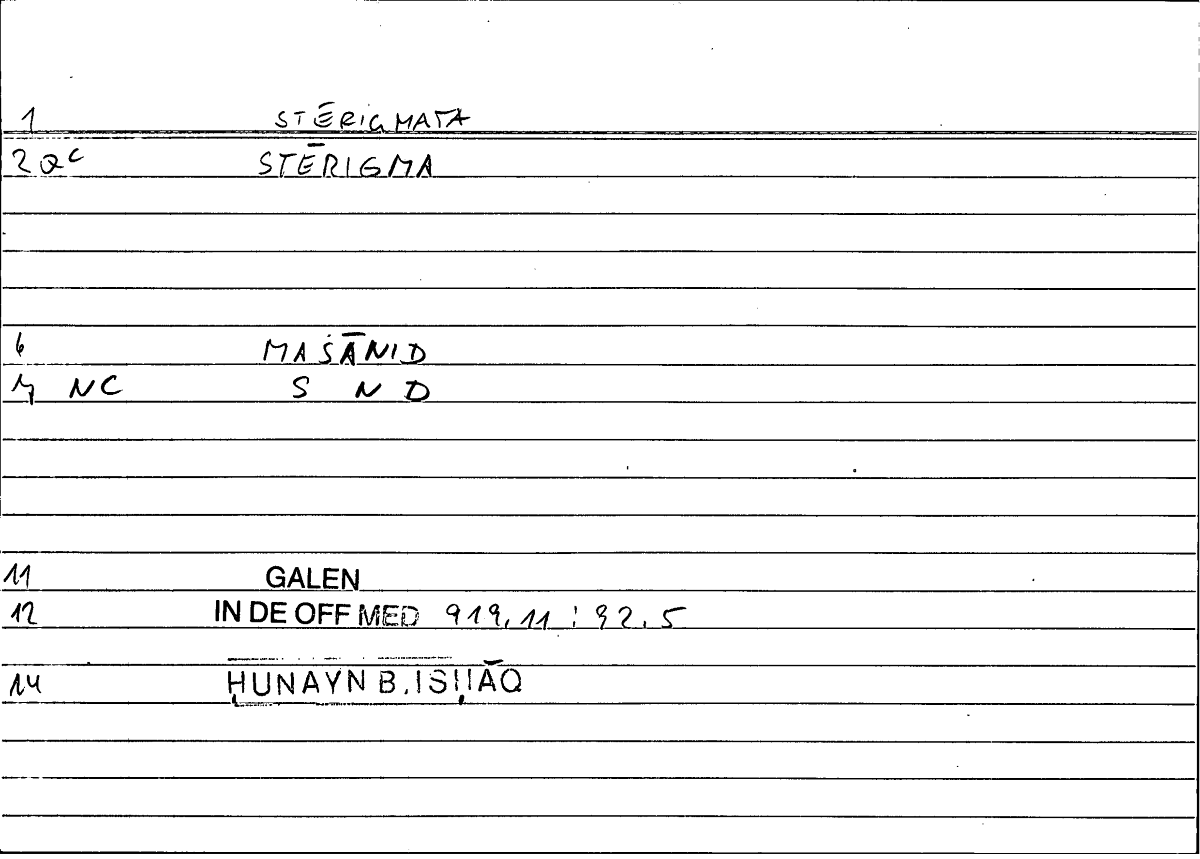 1 STĒRIGMATA
2 QC STĒRIGMA
6 MASĀNID
7 NC S N D
11 GALEN
12 IN DE OFF MED 919,11 : 92,5
14 ḤUNAYN B. ISḤĀQ